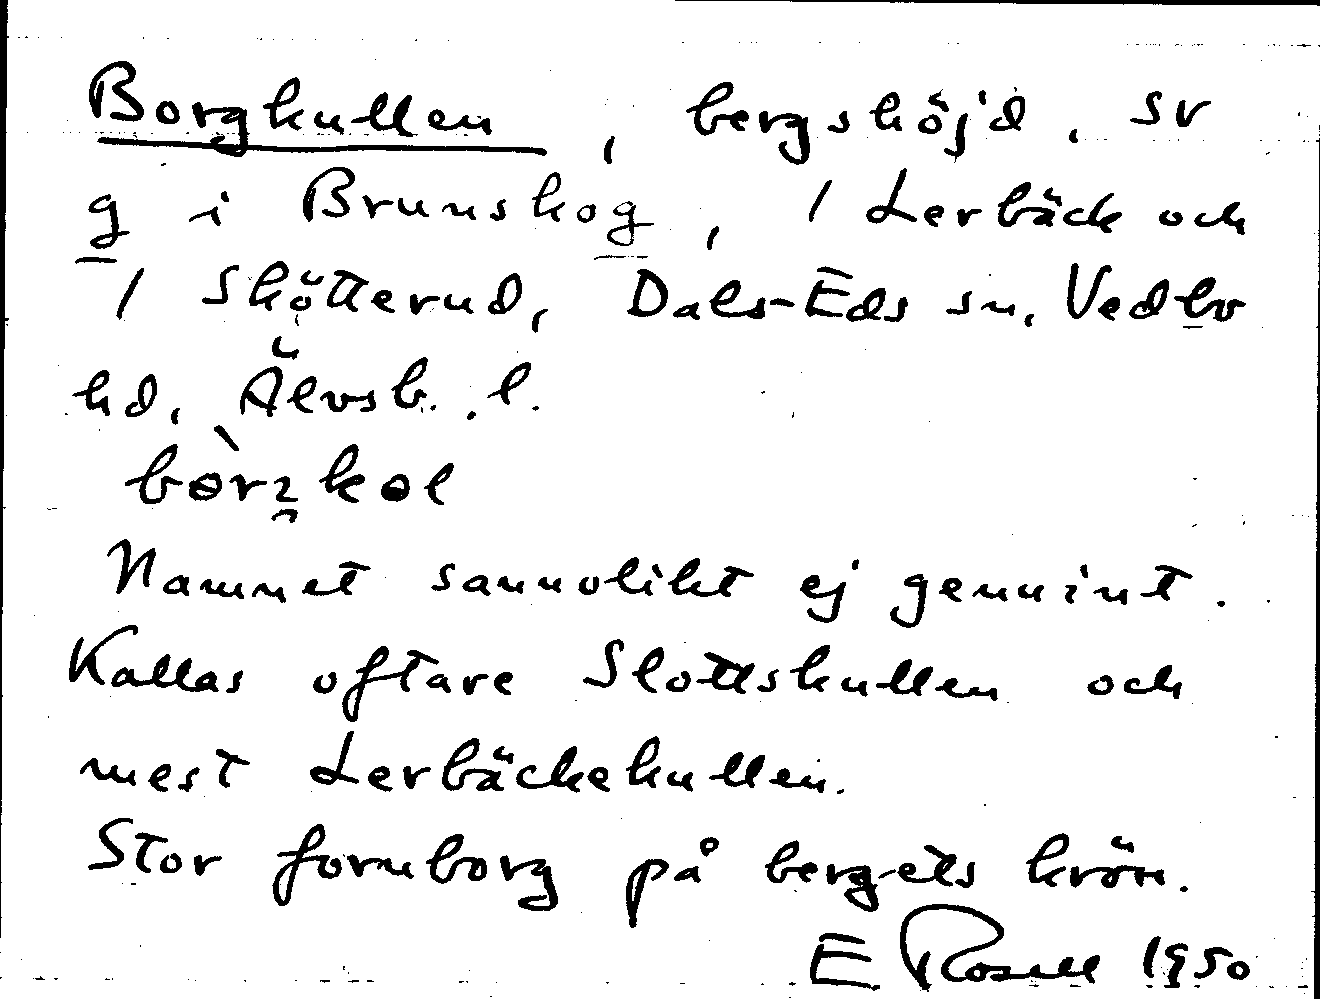 Borgkullen, bergshöjd, sv
g i Brunskog, / Lerbäck och
/ Skötterud, Dals-Eds sn, Vedbo
hd, Älvsb. l.
Namnet sannolikt ej genuint.
Kallas oftare Slottskullen och
mest Lerbäckekullen.
Stor fornborg på bergets krön.
E Rosell 1950